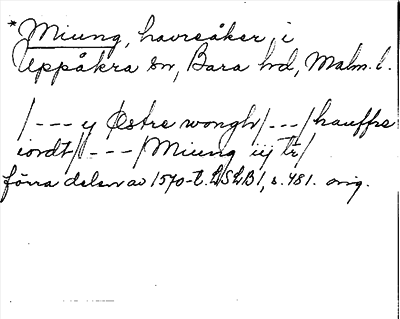 *Miung, havreåker i
Uppåkra sn, Bara hd, Malm. l.
/---y Østre wongh/---/hauffre
iordt/---/Miung iij tr/
förra delen av 1570-t. LSLB1, s. 481. orig.